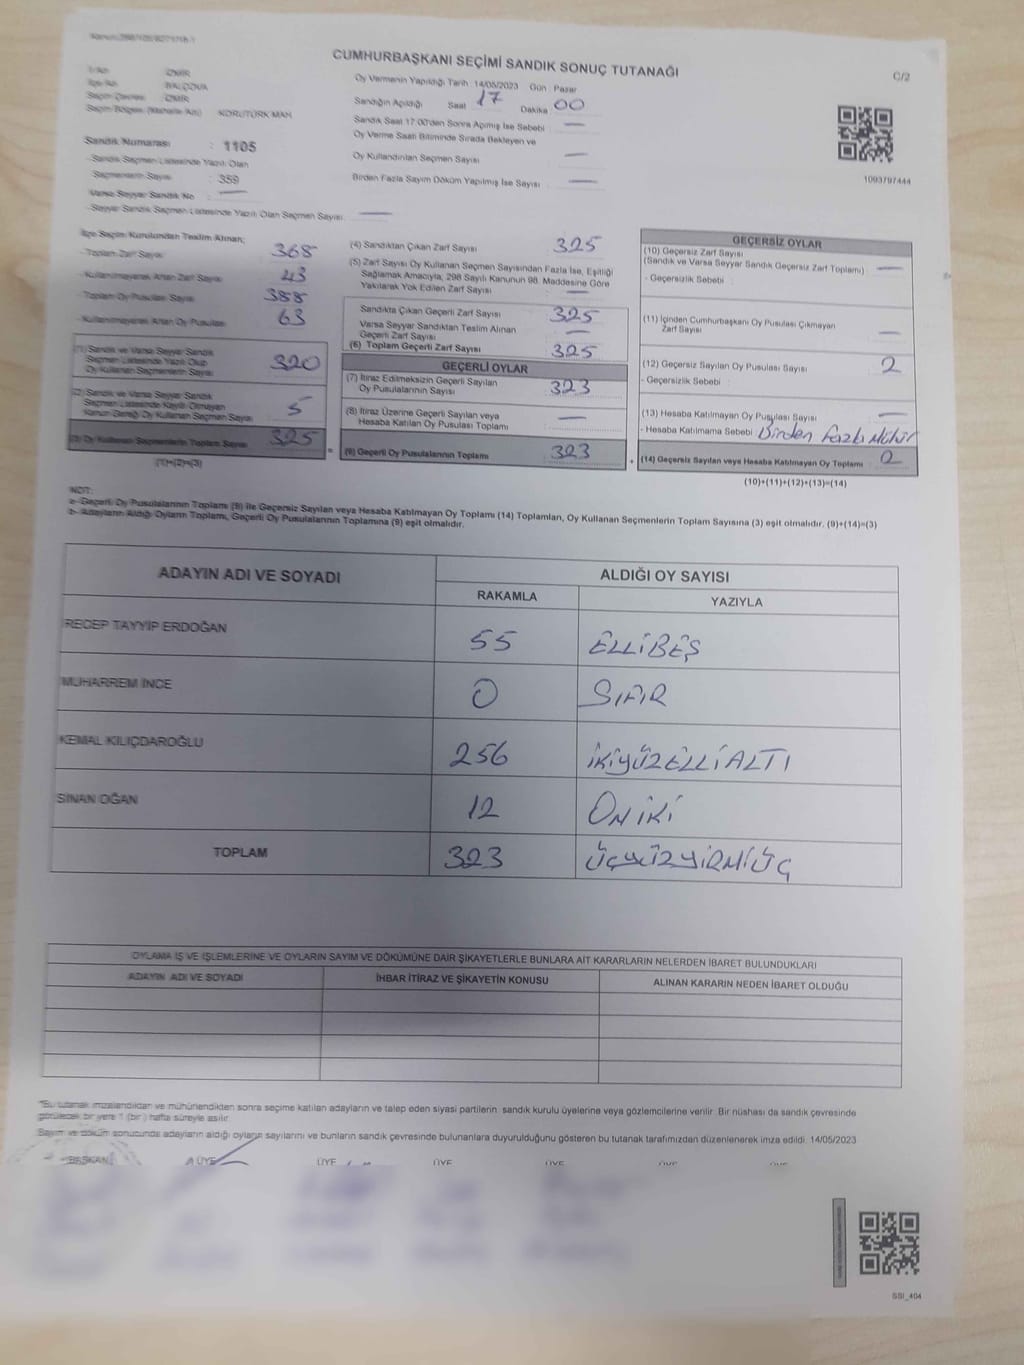 CUMHURBAŞKANI SEÇİMİ SANDIK SONUÇ TUTANAĞI
C/2
İZMİR
Oy Vermenin Yapıldığı Tarih 14/05/2023 Gün Pazar
İlçe Adı BALÇOVA
Sandığın Açıldığı Saat 17 Dakika 00
Seçim Çevresi İZMİR
Sandık Saat 17:00'den Sonra Açılmış İse Sebebi —
Seçim Bölgesi (Mahalle Adı) KORUTÜRK MAH
Oy Verme Saati Bitiminde Sırada Bekleyen ve
Oy Kullandırılan Seçmen Sayısı —
Birden Fazla Sayım Döküm Yapılmış İse Sayısı —
1093797444
Sandık Numarası : 1105
- Sandık Seçmen Listesinde Yazılı Olan
Seçmenlerin Sayısı : 359
Varsa Seyyar Sandık No —
- Seyyar Sandık Seçmen Listesinde Yazılı Olan Seçmen Sayısı: —
İlçe Seçim Kurulundan Teslim Alınan;
- Toplam Zarf Sayısı 368
- Kullanılmayarak Artan Zarf Sayısı 43
- Toplam Oy Pusulası Sayısı 388
- Kullanılmayarak Artan Oy Pusulası 63
(1) Sandık ve Varsa Seyyar Sandık
Seçmen Listesinde Yazılı Olup
Oy Kullanan Seçmenlerin Sayısı 320
(2) Sandık ve Varsa Seyyar Sandık
Seçmen Listesinde Kayıtlı Olmayan
Kanun Gereği Oy Kullanan Seçmen Sayısı 5
(3) Oy Kullanan Seçmenlerin Toplam Sayısı 325
(1)+(2)=(3)
(4) Sandıktan Çıkan Zarf Sayısı 325
(5) Zarf Sayısı Oy Kullanan Seçmen Sayısından Fazla İse, Eşitliği
Sağlamak Amacıyla, 298 Sayılı Kanunun 98. Maddesine Göre
Yakılarak Yok Edilen Zarf Sayısı —
Sandıkta Çıkan Geçerli Zarf Sayısı 325
Varsa Seyyar Sandıktan Teslim Alınan
Geçerli Zarf Sayısı —
(6) Toplam Geçerli Zarf Sayısı 325
GEÇERLİ OYLAR
(7) İtiraz Edilmeksizin Geçerli Sayılan
Oy Pusulalarının Sayısı 323
(8) İtiraz Üzerine Geçerli Sayılan veya
Hesaba Katılan Oy Pusulası Toplamı —
(9) Geçerli Oy Pusulalarının Toplamı 323
GEÇERSİZ OYLAR
(10) Geçersiz Zarf Sayısı
(Sandık ve Varsa Seyyar Sandık Geçersiz Zarf Toplamı) —
- Geçersizlik Sebebi :
(11) İçinden Cumhurbaşkanı Oy Pusulası Çıkmayan
Zarf Sayısı —
(12) Geçersiz Sayılan Oy Pusulası Sayısı 2
- Geçersizlik Sebebi :
(13) Hesaba Katılmayan Oy Pusulası Sayısı —
- Hesaba Katılmama Sebebi Birden Fazla Mühür
(14) Geçersiz Sayılan veya Hesaba Katılmayan Oy Toplamı 2
(10)+(11)+(12)+(13)=(14)
NOT:
a- Geçerli Oy Pusulalarının Toplamı (9) ile Geçersiz Sayılan veya Hesaba Katılmayan Oy Toplamı (14) Toplamları, Oy Kullanan Seçmenlerin Toplam Sayısına (3) eşit olmalıdır. (9)+(14)=(3)
b- Adayların Aldığı Oyların Toplamı, Geçerli Oy Pusulalarının Toplamına (9) eşit olmalıdır.
ADAYIN ADI VE SOYADI
ALDIĞI OY SAYISI
RAKAMLA YAZIYLA
RECEP TAYYİP ERDOĞAN 55 ELLİBEŞ
MUHARREM İNCE 0 SIFIR
KEMAL KILIÇDAROĞLU 256 İKİYÜZELLİALTI
SİNAN OĞAN 12 ONİKİ
TOPLAM 323 ÜÇYÜZYİRMİÜÇ
OYLAMA İŞ VE İŞLEMLERİNE VE OYLARIN SAYIM VE DÖKÜMÜNE DAİR ŞİKAYETLERLE BUNLARA AİT KARARLARIN NELERDEN İBARET BULUNDUKLARI
ADAYIN ADI VE SOYADI İHBAR İTİRAZ VE ŞİKAYETİN KONUSU ALINAN KARARIN NEDEN İBARET OLDUĞU
*Bu tutanak imzalandıktan ve mühürlendikten sonra seçime katılan adayların ve talep eden siyasi partilerin sandık kurulu üyelerine veya gözlemcilerine verilir. Bir nüshası da sandık çevresinde
görülecek bir yere 1 (bir) hafta süreyle asılır.
Sayım ve döküm sonucunda adayların aldığı oyların sayılarını ve bunların sandık çevresinde bulunanlara duyurulduğunu gösteren bu tutanak tarafımızdan düzenlenerek imza edildi. 14/05/2023
BAŞKAN ÜYE ÜYE ÜYE ÜYE ÜYE ÜYE
SSI_404